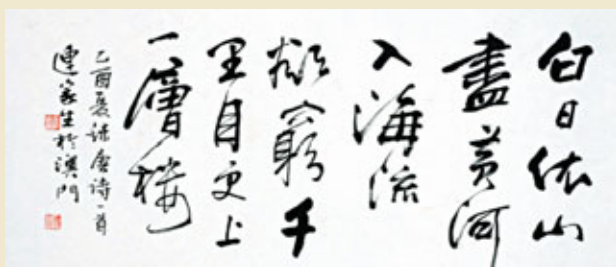 白日依山
盡黃河
入海流
欲窮千
里目更上
一層樓
乙酉夏錄唐詩一首
連家生於澳門